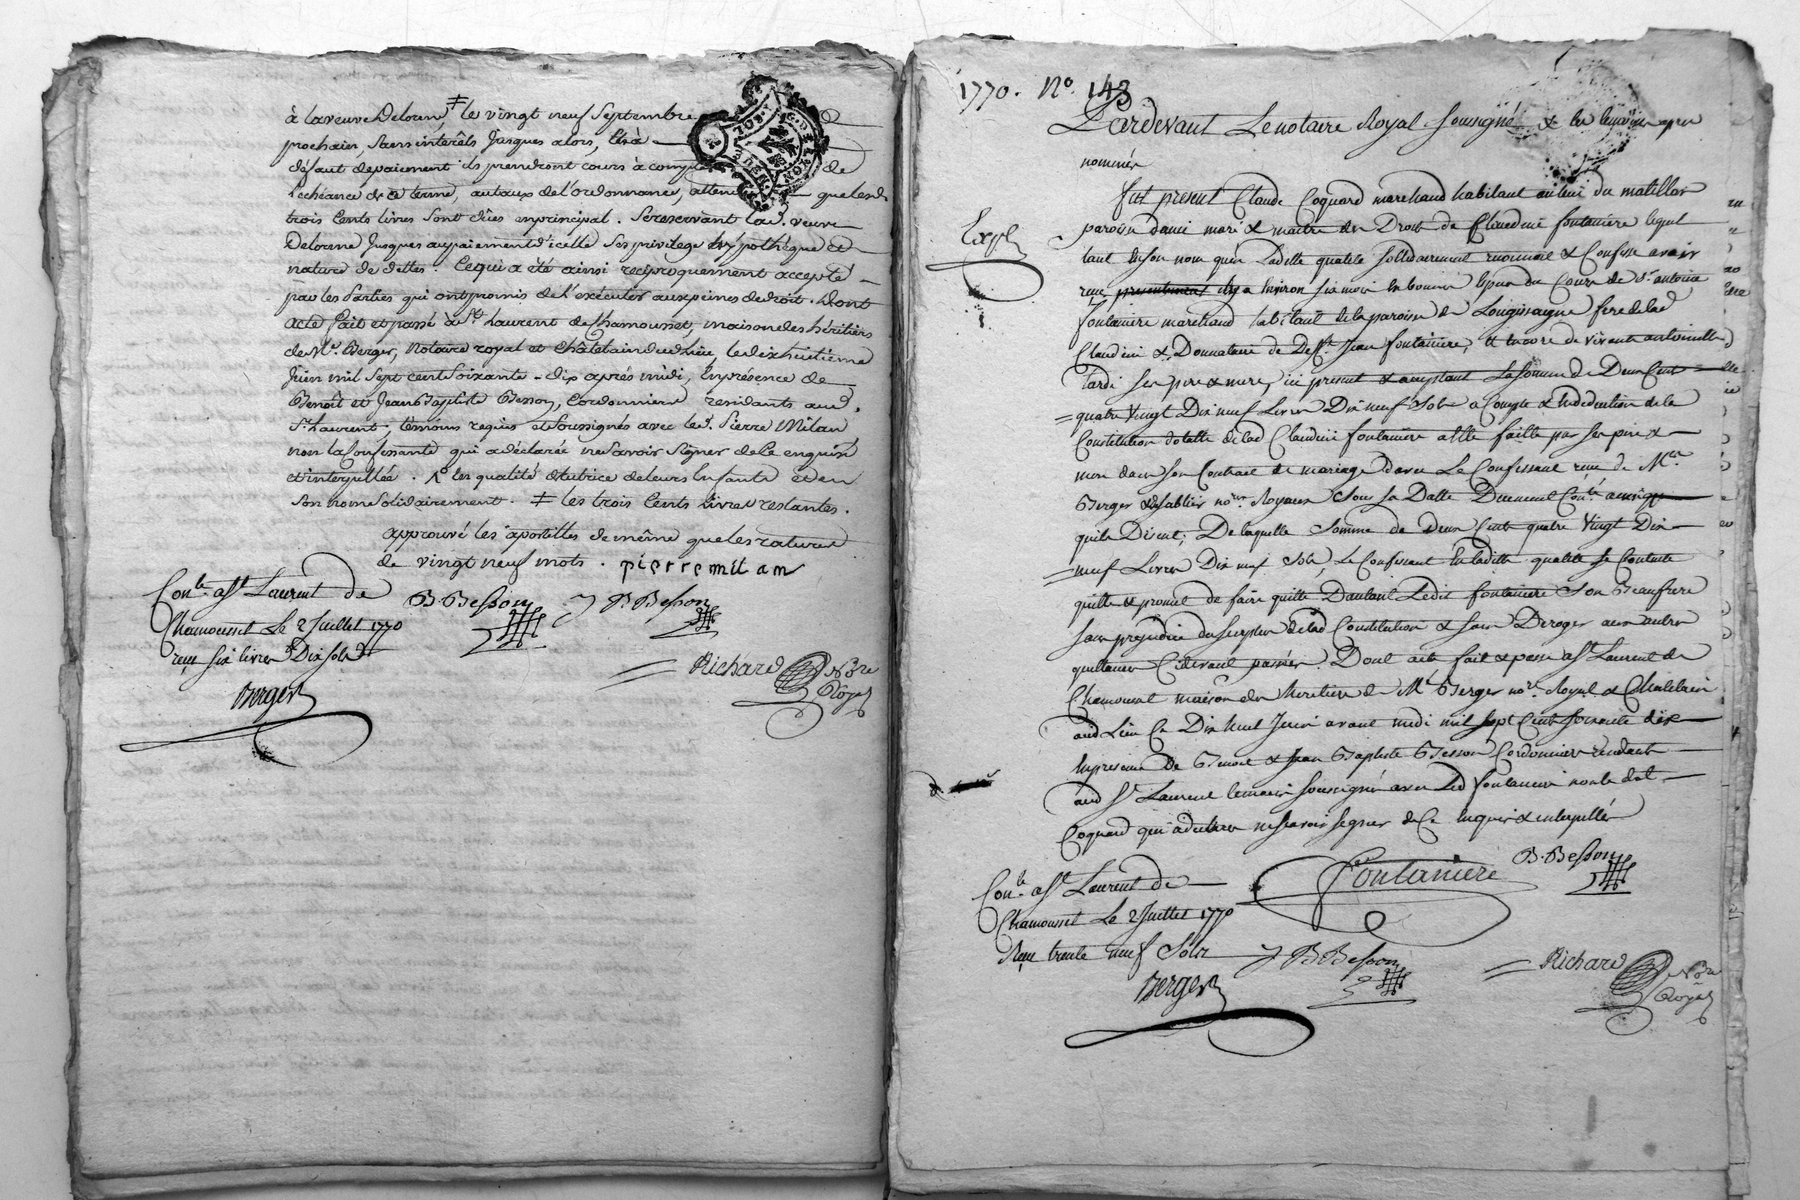 à la veuve Delorme ‡ le vingt neuf Septembre
prochain, Sans intérêts Jusques alors, Et à
défaut depaiement ils prendront cours à compter de
l'echéance de ce terme, au taux de l'ordonnance, attendu que lesd.
trois Cents livres Sont dües en principal. Se reservant lad. veuve
Delorme Jusques au paiement d'icelle Ses privilege hypothèque et
nature de dettes. Ce qui a été ainsi réciproquement accepté
par les Parties qui ont promis de l'exécuter aux peines de droit. Dont
acte fait et passé à St Laurent de Chamousset, maison des héritiers
de Me. Berger, Notaire royal et Châtelain dud. Lieu, le dix huitième
Juin mil Sept cent Soixante-dix après midi, En présence de
Benoît et Jean Baptiste Besson, Cordonniers résidants aud.
St Laurent, témoins requis et Soussignés avec led. Pierre Milan
non la Confessante qui a déclaré ne Savoir Signer de Ce enquise
et interpellée. en qualité de tutrice de leurs Enfants et en
Son nom Solidairement. ‡ les trois Cents Livres restantes.
approuvé les apostilles de même que les ratures
de vingt neuf mots. pierre milan
Con.le a St Laurent de
Chamousset Le 2 Juillet 1770
reçu six livres Dix sols
Berger
B. Besson J B Besson
Richard Nore
Royal
ZOS.
2. DEN.
G. DE LYON
1770. No. 143
Pardevant Le notaire Royal Soussigné & les temoins apres
nommés
Expé
fut present Claude Coquard marchand habitant au lieu du matillon
paroisse mari & maitre des Droits de Claudine fontaniere lequel
tant en son nom qu'en Ladite qualité sollidairement reconnait & Confesse avoir
reçu presentement il y a Environ six mois
fontaniere marchand habitant de la paroisse de Longissaigne frere de lad
Claudine & Donnataire de Jean fontaniere, et encore de vivante antoinette
Tardi ses pere & mere, ici present & acceptant La somme de Deux Cent
quatre Vingt Dix neuf Livres Dix neuf Sols a Compte & En deduction de la
Constitution dotalle de lad Claudine fontaniere a Elle faitte par ses pere &
mere dans son Contract de mariage d'avec Le Confessant reçu de Mes
Berger & nores Royaux Sous sa Datte
quils Disent, De laquelle Somme de Deux Cent quatre Vingt Dix
neuf Livres Dix neuf Sols, Le Confessant En ladite qualité se Contente
quitte & promet de faire quitte D'autant Ledit fontaniere Son Beaufrere
sans prejudice du surplus de lad Constitution & sans Deroger aux autres
quittances Cidevant passées. Dont acte fait & passé a St Laurent de
Chamousset maison des Heritiers de Me Berger nore. Royal & Chatelain
aud Lieu Ce Dix huit Juin avant midi mil sept Cent soixante dix
En presence De Benoit & Jean Baptiste Besson Cordonniers residants
aud St Laurent temoins soussignés avec Led fontaniere non le dit
Coquard qui a declaré ne sçavoir signer de Ce Enquis & interpellé
Con.le a St Laurent de
Chamousset Le 2 Juillet 1770
Reçu trente neuf Sols
Berger
Fontaniere B. Besson
J B Besson
Richard Nore
Royal